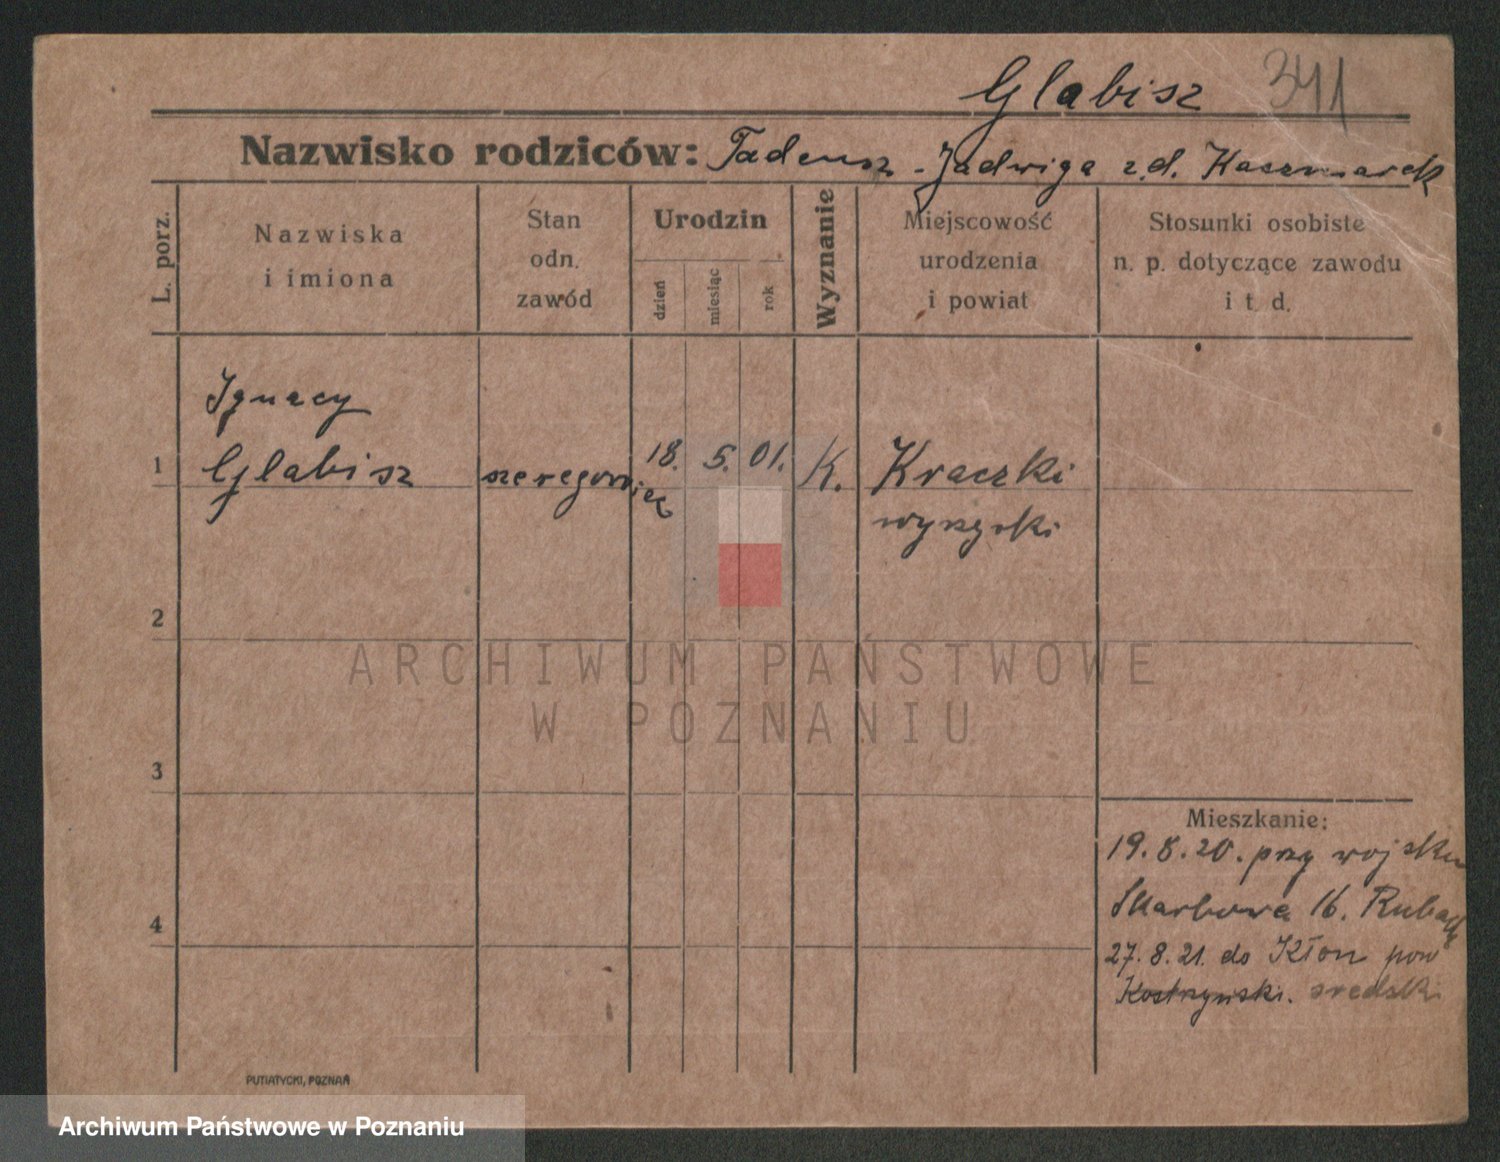 Glabisz 341
Nazwisko rodziców: Tadeusz - Jadwiga z d. Kaczmarek
L. porz.
Nazwiska
i imiona
Stan
odn.
zawód
Urodzin
dzień
miesiąc
rok
Wyznanie
Miejscowość
urodzenia
i powiat
Stosunki osobiste
n. p. dotyczące zawodu
i t. d.
Ignacy
1 Glabisz szeregowiec 18. 5. 01. K. Kraczki
wyrzyski
2
ARCHIWUM PAŃSTWOWE
W POZNANIU
3
Mieszkanie:
19.8.20. przy wojsku
4 Skarbowa 16.
27.8.21. do Kłon pow
Kostrzyński. sredski
PUTIATYCKI, POZNAŃ
Archiwum Państwowe w Poznaniu